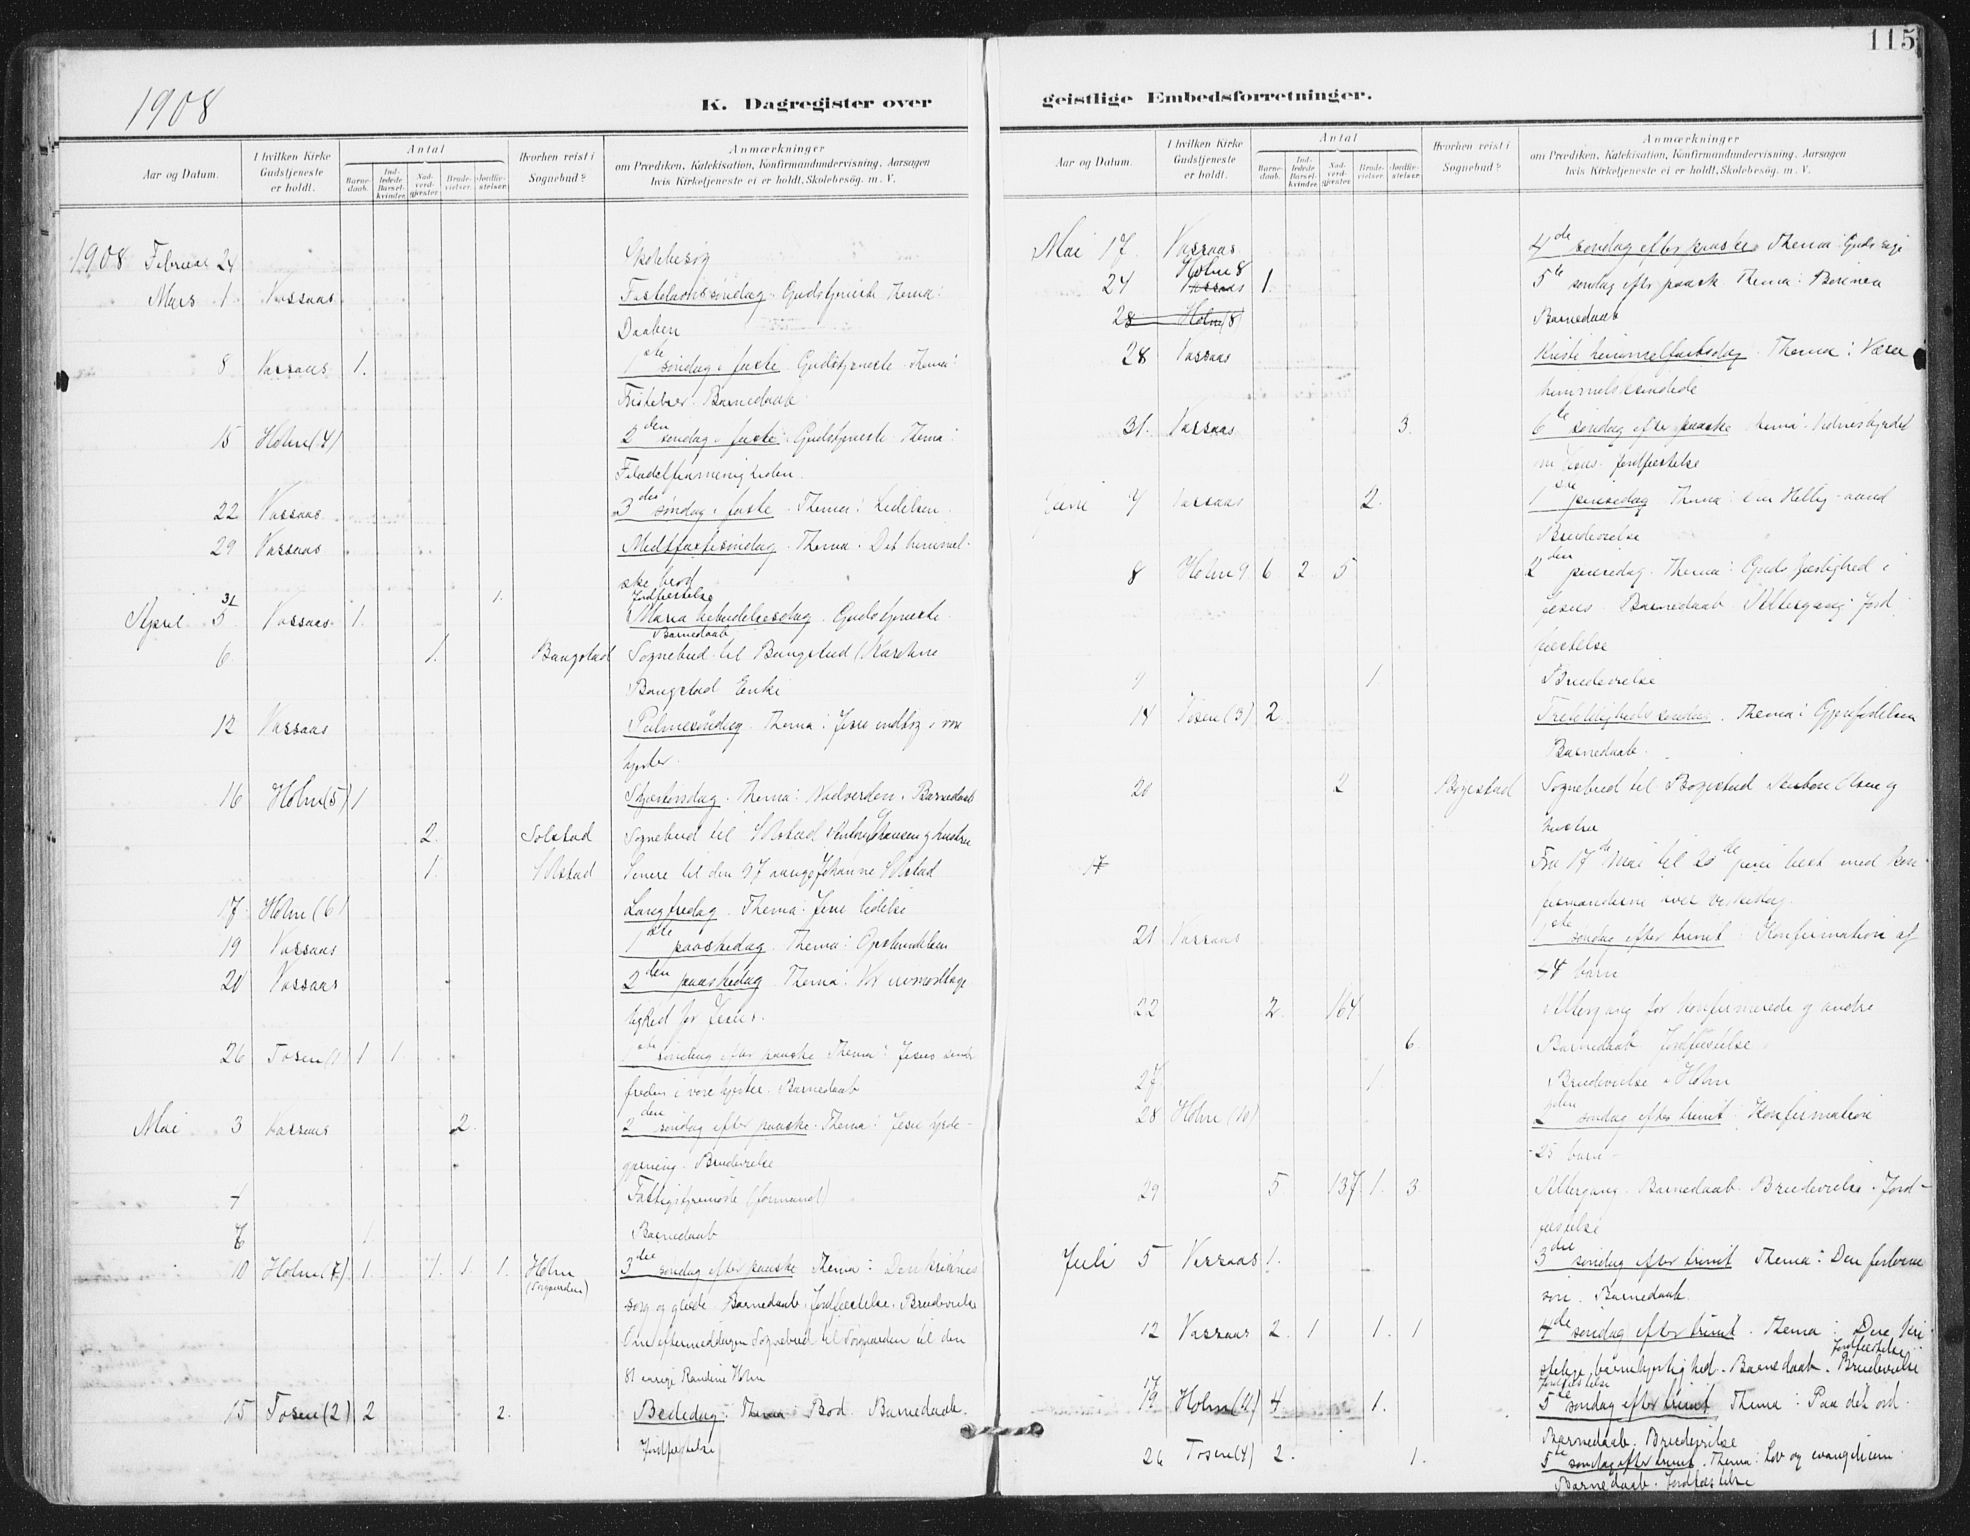 115
1908
K. Dagregister over geistlige Embedsforretninger.
Aar og Datum.
I hvilken Kirke Gudstjeneste er holdt.
Antal
Barne-daab.
Ind-ledede Barsel-kvinder.
Nad-verd-gjester.
Brude-vielser.
Jordfæ-stelser.
Hvorhen reist i Sognebud?
Anmærkninger
om Prædiken, Katekisation, Konfirmandundervisning, Aarsagen
hvis Kirketjeneste ei er holdt, Skolebesøg. m. V.
1908 Februar 24 Skolebesøg
Mars 1 Vassaas Fastelavnssøndag. Gudstjeneste. Thema:
Daaben
8 Vassaas 1. 1ste søndag i faste. Gudstjeneste. Thema:
Fristelser. Barnedaab.
15 Holm (4) 2den søndag i faste. Gudstjeneste. Thema:
Filadelfiamenigheden.
22 Vassaas 3die søndag i faste. Thema: Lidelsen.
29 Vassaas Midtfastesøndag. Thema: Det himmel-
ske brød
31 1. Jordfæstelse
April 5 Vassaas 1. Maria bebudelsesdag. Gudstjeneste.
Barnedaab
6 1. Bangstad Sognebud til Bangstad (Karoline
Bangstad Enke
12 Vassaas Palmesøndag. Thema: Jesu indtog i vore
hjerter.
16 Holm (5) 1 Skjærtorsdag. Thema: Nadverden. Barnedaab
2. Solstad Sognebud til Solstad Johansen og hustru
1. Solstad Senere til den 97 aarige Johanne Solstad
17 Holm (6) Langfredag. Thema: Jesu lidelse
19 Vassaas 1ste paaskedag. Thema: Opstandelsen
20 Vassaas 2den paaskedag. Thema: Vor uimodtage-
lighed for Jesus.
26 Tosen (1) 1 1. 1ste søndag efter paaske Thema: Jesus sender
freden i vore hjerter. Barnedaab
Mai 3 Vassaas 2. 2den søndag efter paaske. Thema: Jesu hyrde-
gjerning. Brudevielse
4 Fattigstyremøde (formand)
7 1. Barnedaab
10 Holm (7) 1. 1. 1. 1. Holm 3die søndag efter paaske Thema: Den kristnes
sorg og glæde. Barnedaab. Jordfæstelse. Brudevielse
Om eftermiddagen Sognebud til til den
81 aarige Randine Holm
15 Tosen (2) 2 2. Bededag. Thema: Bod. Barnedaab.
Jordfæstelse
Mai 17. Vassaas 4de søndag efter paaske Thema: Guds
24 Holm 8 Vassaas 1. 5te søndag efter paaske. Thema: Bønnen
Barnedaab
28 Holm (8)
28 Vassaas Kristi himmelfartsdag. Thema: Være
himmelsksindede
31. Vassaas 3. 6te søndag efter paaske Thema: Vidnesbyrdet
om Jesus. Jordfæstelse
Juni 7 Vassaas 2. 1ste pinsedag Thema: den Hellig-aand
Brudevielse
8 Holm 9 6 2. 5 2den pinsedag. Thema: Guds kjærlighed i
Jesus. Barnedaab. Altergang. Jord-
fæstelse
9 1 Brudevielse
14 Tosen (3) 2. Trefoldighedssøndag. Thema: Gjenfødelsen
Barnedaab.
20 2 Bogestad Sognebud til Bogestad Olsen og
hustru
17 Fra 17de Mai til 20de juni læst med kon-
firmanderne hver virkedag.
21 Vassaas 1ste søndag efter trinit: Konfirmation af
44 barn
22 2. 164 Altergang for konfirmerede og andre
6. Barnedaab. Jordfæstelse
27 1. Brudevielse i Holm
28 Holm (10) 2den søndag efter trinit: Konfirmation
25 barn
29 5 137 1. 3 Altergang. Barnedaab. Brudevielse. Jord-
fæstelse
Juli 5 Vassaas 1. 3die søndag efter trinit Thema: Den fortabte
søn. Barnedaab.
12 Vassaas 2. 1 1. 1 4de søndag efter trinit. Thema: Den kri-
stelige barmhjertighed. Barnedaab. Brudevielse
Jordfæstelse
17 Jordfæstelse
19 Holm (12) 4 1. 5te søndag efter trinit Thema: Paa det ord.
Barnedaab. Brudevielse
26 Tosen (4) 2. 1. 5te søndag efter trinit. Thema: Lov og evangelium
Barnedaab. Jordfæstelse